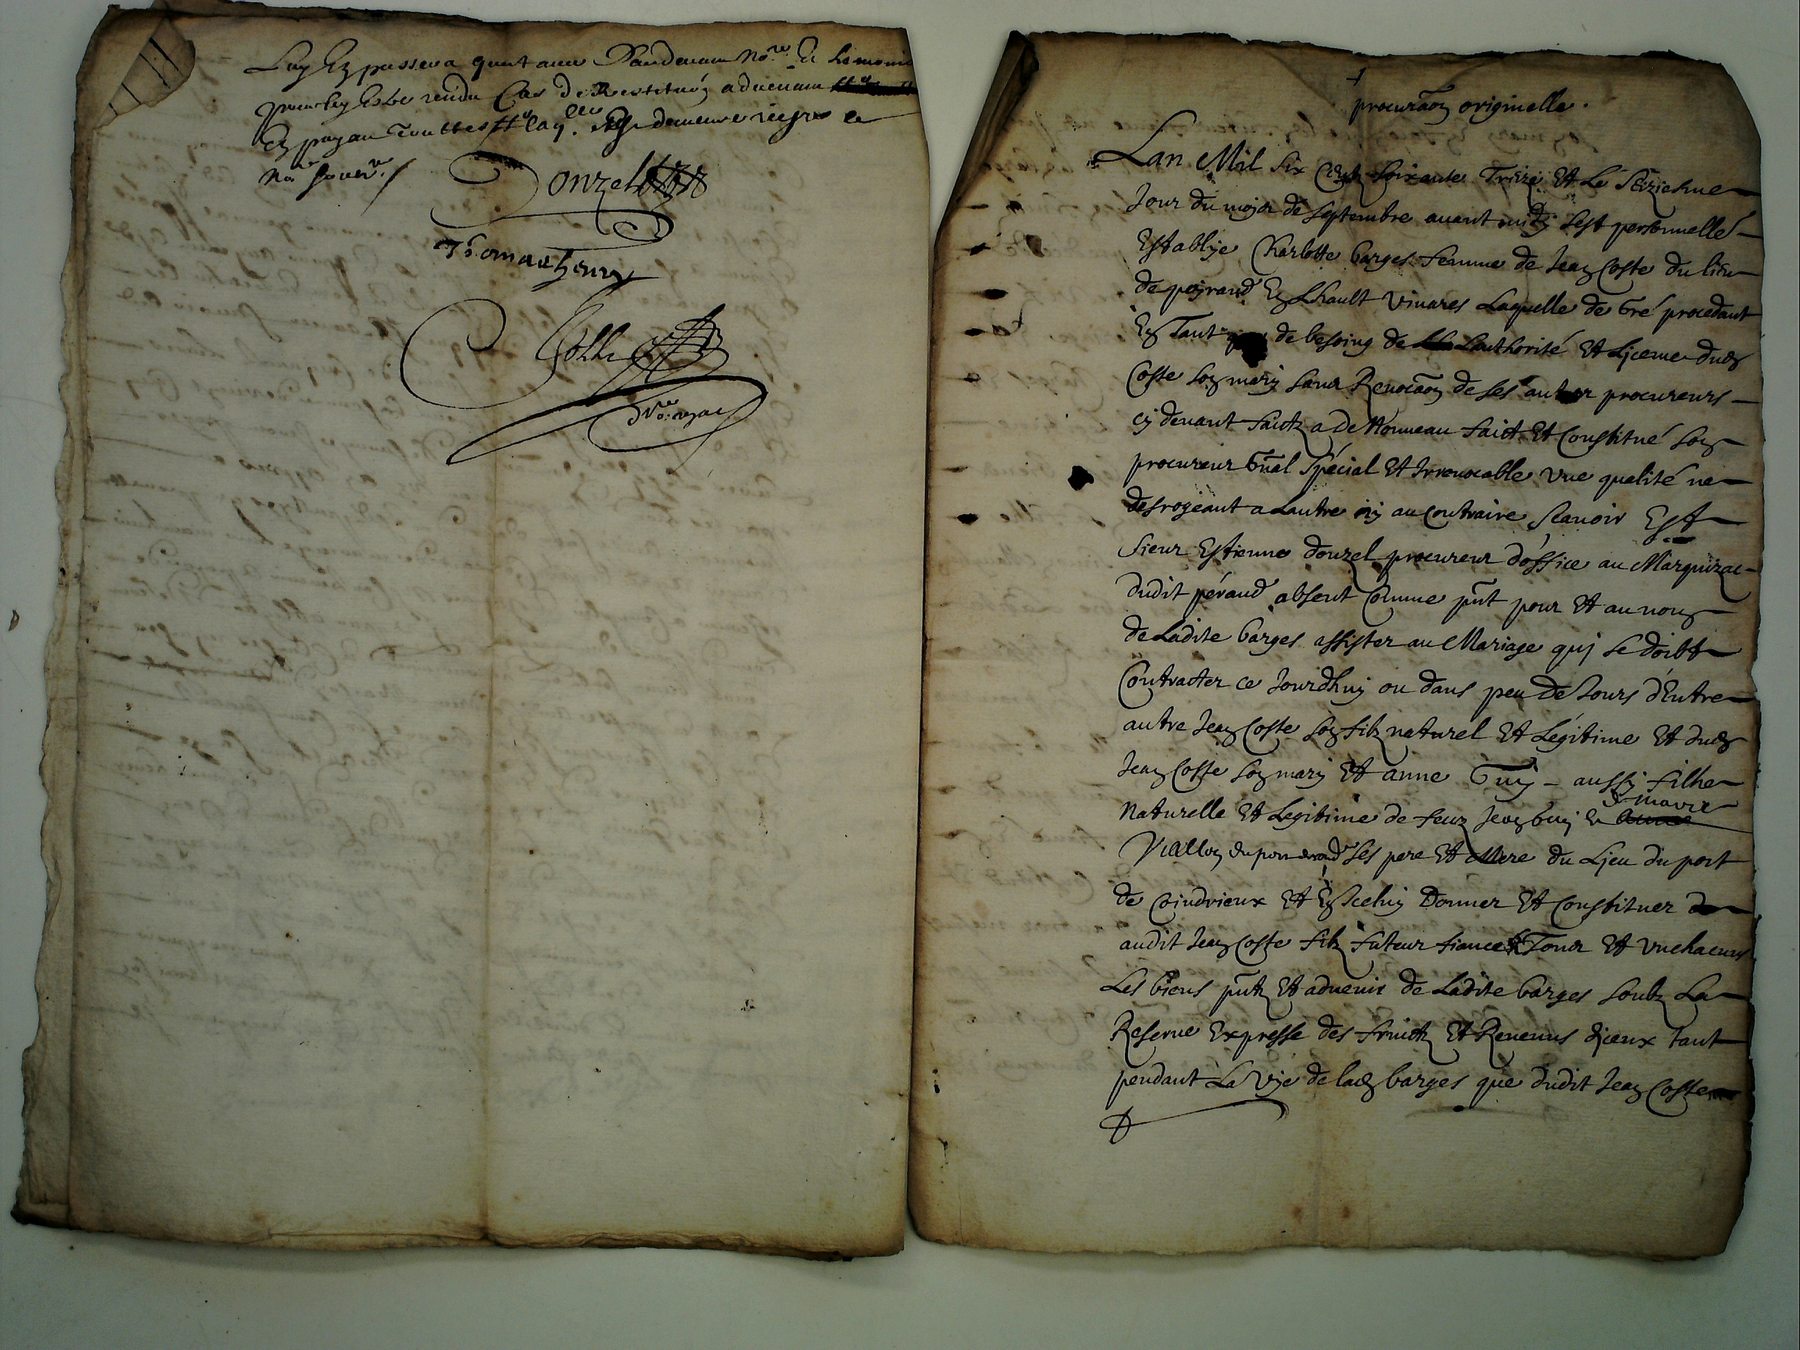 Luy En passera quittance Pardevant No.re Et
pour luy Estre rendu Cas de Restituõn advenant
En payan Touttes
No.re soubz.ne
Donzel
Thomas henry
Colh
No.re royal
procuraõn originelle.
Lan Mil Six Centz Soixante Treize Et Le Seziesme
Jour du mojs de Septembre avant midy sest personnellé
Establye Charlotte barges femme de Jean Coste du lieu
de peyraud En Lhault vivares Laquelle de Gré procedant
En Tant que de besoing de Lauthorité Et Ljcence dud
Coste son mary sans Revocaõn de ses autres procureurs
cy devant faictz a de Nouveau faict Et Constitué son
procureur Gñal Spécial Et Irrevocable une qualité ne
desrogeant a Lautre ny au Contraire Scavoir Est
Sieur Estienne donzel procureur d'office au Marquizac
dudit péraud absent Comme pñt pour Et au nom
de Ladite barges assister au Mariage quj se doibt
Contracter ce Jourdhuy ou dans peu de Jours d'Entre
autre Jean Coste son filz naturel Et Légitime Et dud
Jean Coste son mary Et anne Guy aussy filhe
Naturelle Et Legitime de feuz Jean Guy Et marie
Viallon du ses pere Et Mere du Ljeu du port
de Coindrieux Et En Jceluy Donner Et Constituer
audit Jean Coste filz futeur fiance Tous Et unchacuns
Les biens pñtz Et advenir de Ladite barges soubz La
Reserve Expresse des fruictz Et Revenus djceux tant
pendant La Vye de lad barges que dudit Jean Coste